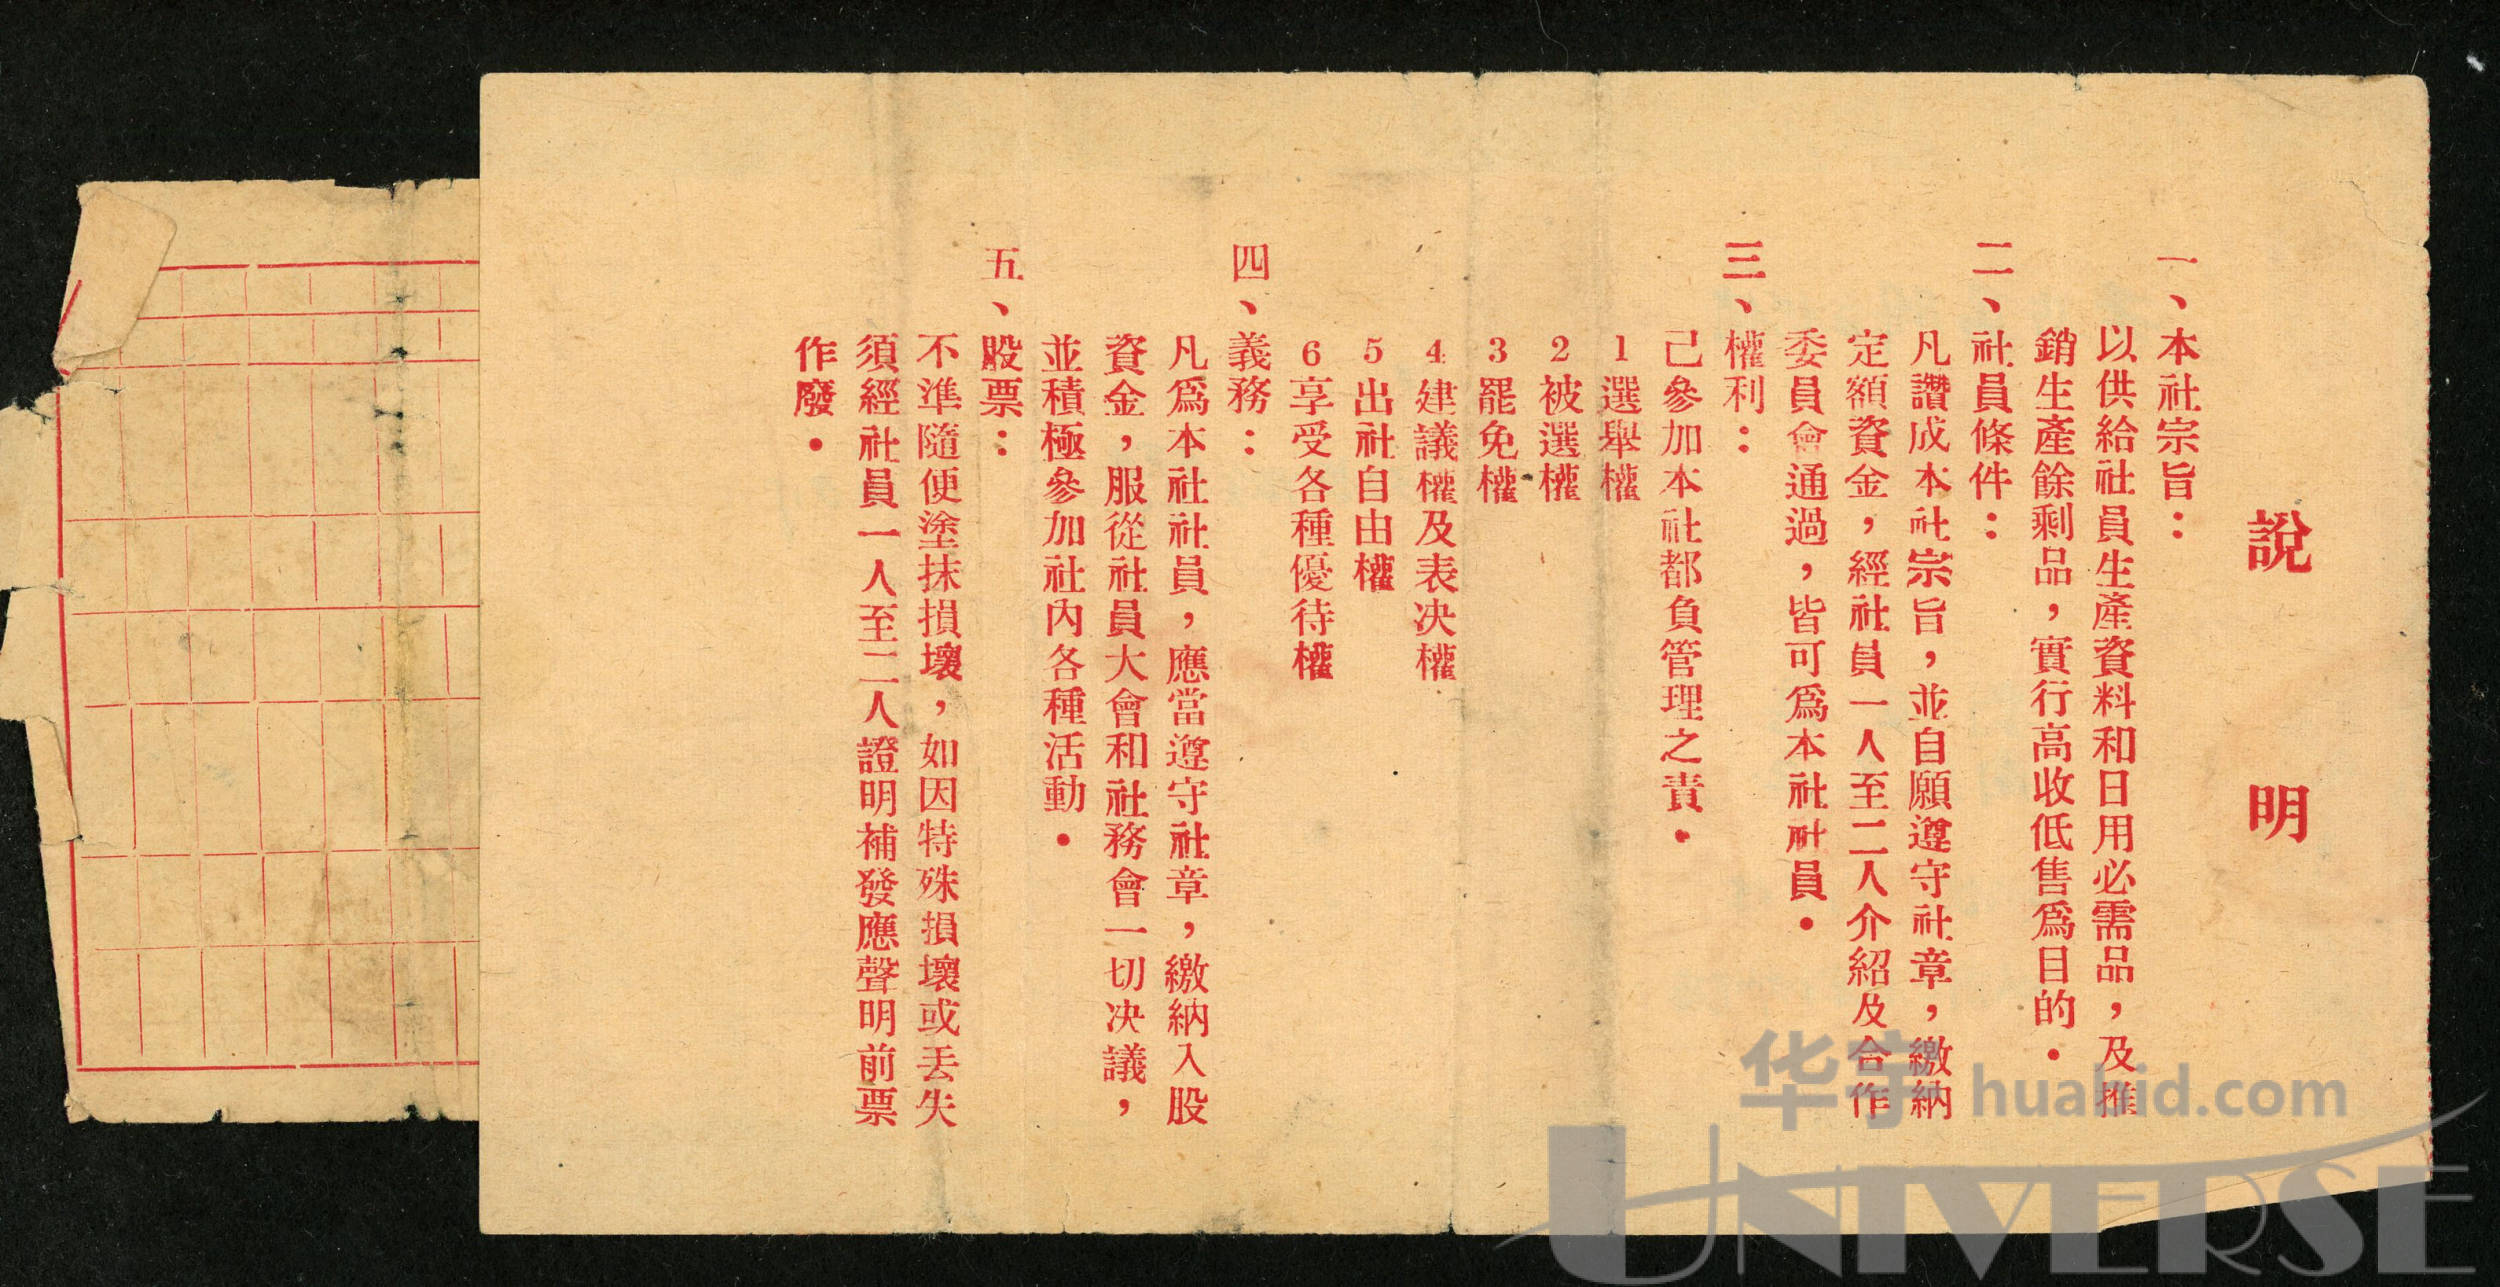 說明
一、本社宗旨：
以供給社員生產資料和日用必需品，及推
銷生產餘剩品，實行高收低售爲目的．
二、社員條件：
凡讚成本社宗旨，並自願遵守社章，繳納
定額資金，經社員一人至二人介紹及合作
委員會通過，皆可爲本社社員．
三、權利：
己參加本社都負管理之責．
1選舉權
2被選權
3罷免權
4建議權及表决權
5出社自由權
6享受各種優待權
四、義務：
凡爲本社社員，應當遵守社章，繳納入股
資金，服從社員大會和社務會一切决議，
並積極參加社內各種活動．
五、股票：
不準隨便塗抹損壞，如因特殊損壞或丢失
須經社員一人至二人證明補發應聲明前票
作廢．
华宇 hualid.com
UNIVERSE